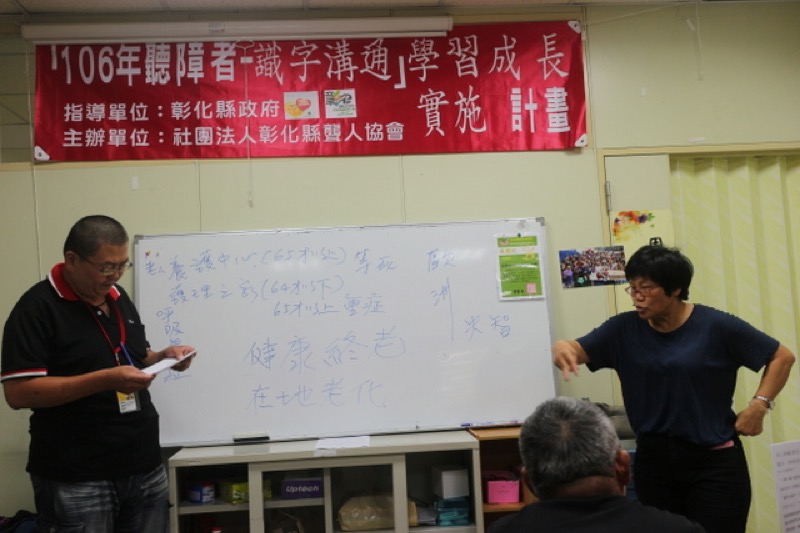 「106年聽障者-識字溝通」學習成長
實施 計畫
指導單位：彰化縣政府
主辦單位：社團法人彰化縣聾人協會
老人養護中心(65才以上) 等死
護理之家(64才以下)
65才以上重症
呼吸
歐洲
失智
健康終老
在地老化
Uptech